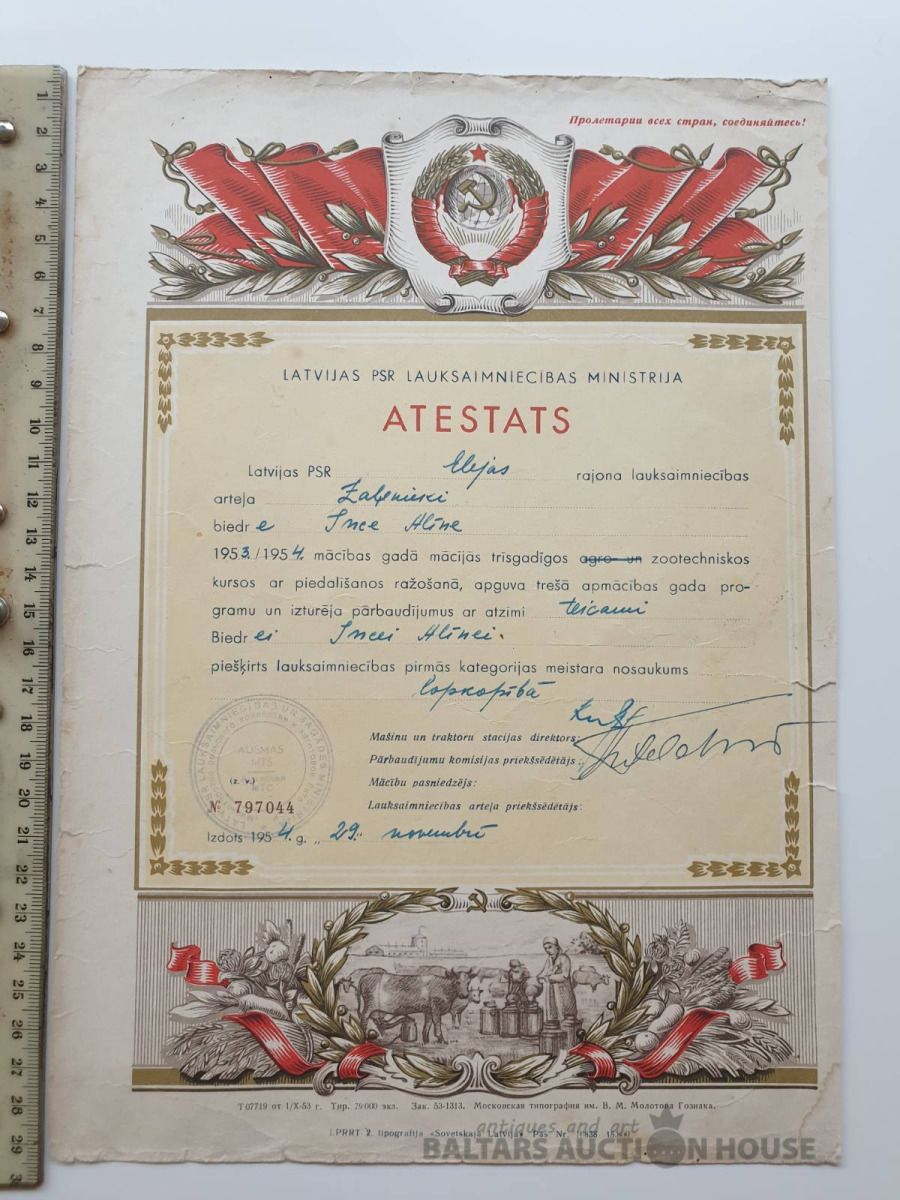 Пролетарии всех стран, соединяйтесь!
LATVIJAS PSR LAUKSAIMNIECĪBAS MINISTRIJA
ATESTATS
Latvijas PSR Elejas rajona lauksaimniecības
arteļa Zaļenieki
biedre Ince Alīne
1953./1954. mācības gadā mācījās trīsgadīgos agro- un zootechniskos
kursos ar piedalīšanos ražošanā, apguva trešā apmācības gada pro-
gramu un izturēja pārbaudījumus ar atzīmi teicami
Biedrei Incei Alīnei.
piešķirts lauksaimniecības pirmās kategorijas meistara nosaukums
lopkopībā
Mašīnu un traktoru stacijas direktors:
Pārbaudījumu komisijas priekšsēdētājs:
Mācību pasniedzējs:
Lauksaimniecības arteļa priekšsēdētājs:
AUSMAS
MTS
(z. v.)
МТС
№ 797044
Izdots 1954. g. „29." novembrī
Т 07719 от 1/X-53 г. Тир. 79000 экз. Зак. 53-1313. Московская типография им. В. М. Молотова Гознака.
LPRRT 2. tipografija «Sovetskaja Latvija» Pas. Nr.
antiques and art
BALTARS AUCTION HOUSE
1
2
3
4
5
6
7
8
9
10
11
12
13
14
15
16
17
18
19
20
21
22
23
24
25
26
27
28
29